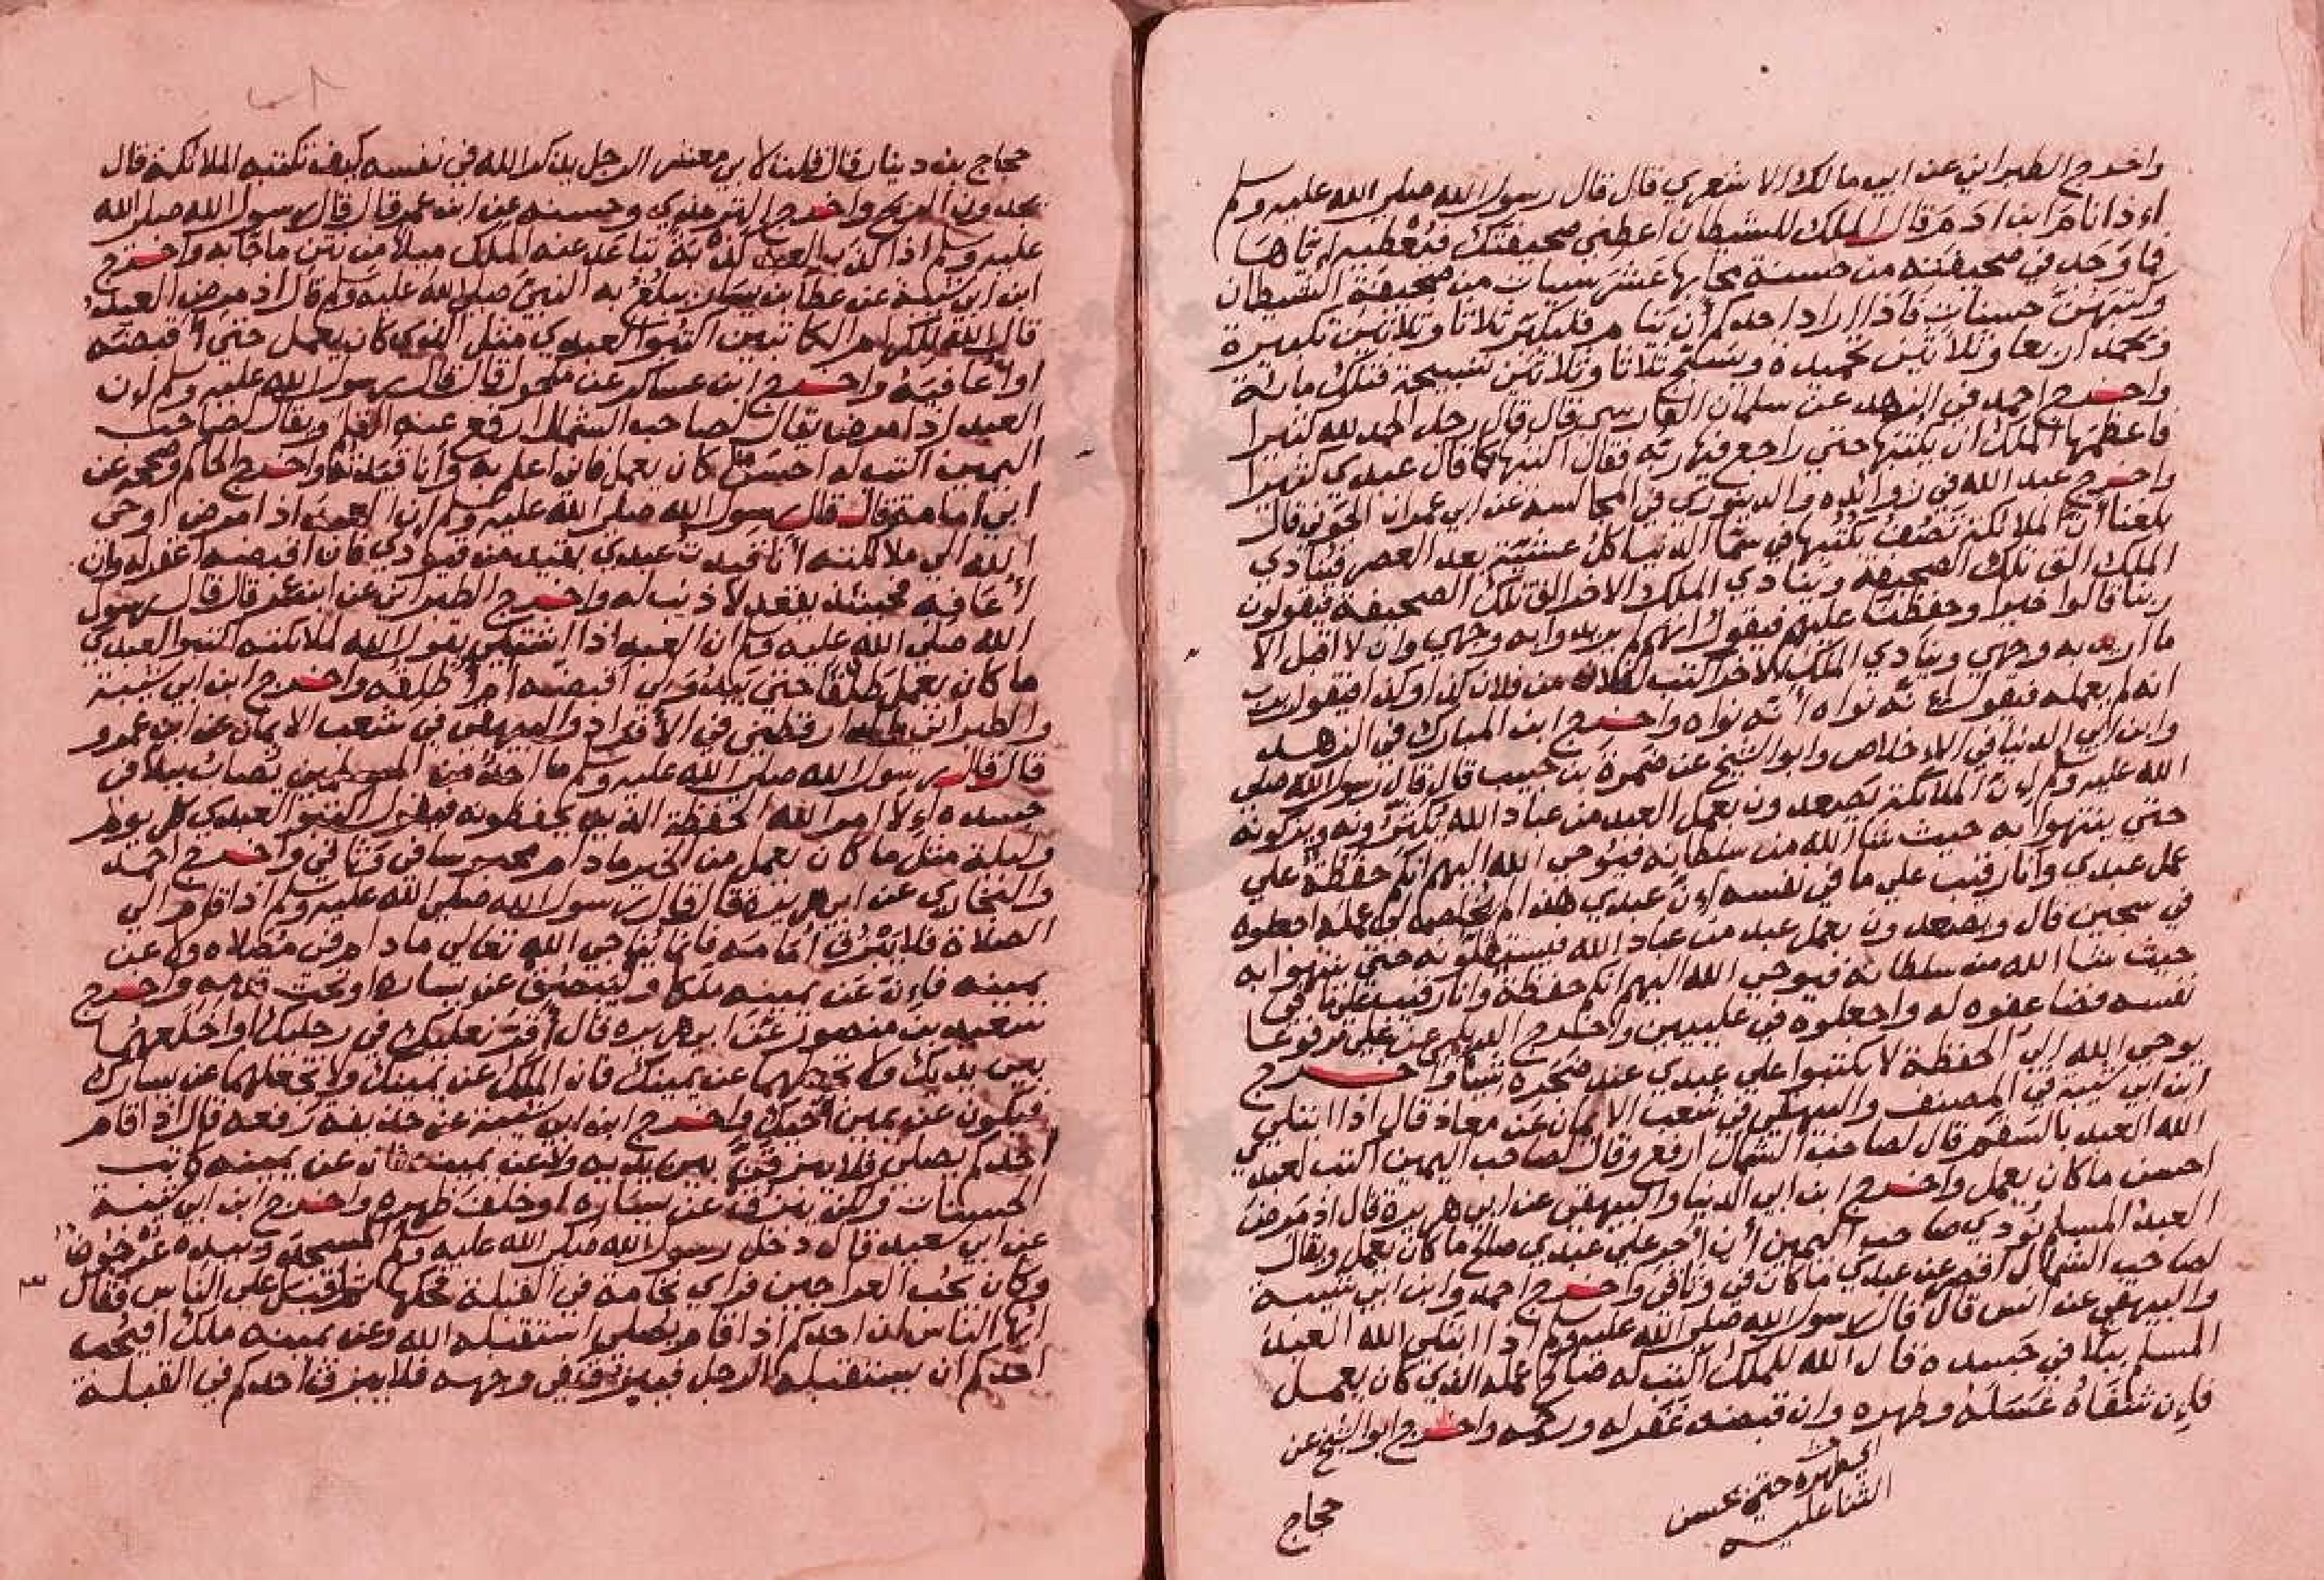 واخرج الطبراني عن ابي مالك الاشعري قال قال رسول الله صلي الله عليه وسلم
اذا نام ابن ادم قال الملك للشيطان اعطني صحيفتك فيعطيه اياها
فما وجد في صحيفته من حسنة محابها عشر سيات من صحيفة الشيطان
وكتبهن حسنات فاذا اراد احدكم ان ينام فليكبر ثلاثا وثلاثين تكبيرة
ويحمد اربعا وثلاثين تحميدة ويسبح ثلاثا وثلاثين تسبيحة فتلك مائة
واخرج احمد في الزهد عن سلمان الفارسي قال قال رجل الحمد لله كثيرا
فاعظمها الملك ان يكتبها حتي راجع فيها ربه فقال اكتبها كما قال عبدي كثيرا
واخرج عبد الله في زوائده والدينوري في المجالسة عن ابي عمران الجوني قال
بلغنا ان الملائكة تصف بكتبها في سما الدنيا كل عشية بعد العصر فينادي
الملك الق تلك الصحيفة وينادي الملك الاخر الق تلك الصحيفة فيقولون
ربنا قالوا خيرا وحفظنا عليهم فيقول انهم لم يريدوا به وجهي واني لا اقبل الا
ما اريد به وجهي وينادي الملك الاخر اكتب لفلان بن فلان كذا وكذا فيقول يارب
انه لم يعمله فيقول انه نواه انه نواه واخرج ابن المبارك في الزهد
وابن ابي الدنيا في الاخلاص وابو الشيخ عن ضمرة بن حبيب قال قال رسول الله صلي
الله عليه وسلم ان الملائكة يصعدون بعمل العبد من عباد الله يكثرونه ويزكونه
حتي ينتهوا به حيث شا الله من سلطانه فيوحي الله اليهم انكم حفظة علي
عمل عبدي وانا رقيب علي ما في نفسه ان عبدي هذا لم يخلص لي عمله اجعلوه
في سجين قال ويصعدون بعمل عبد من عباد الله فيستقلونه حتي ينتهوا به
حيث شا الله من سلطانه فيوحي الله اليهم انكم حفظة وانا رقيب علي ما في
نفسه فضاعفوه له واجعلوه في عليين واخرج الديلمي عن علي مرفوعا
يوحي الله الي الحفظة لا تكتبوا علي عبدي عند ضجره شيا واخرج
ابن ابي شيبة في المصنف والبيهقي في شعب الايمان عن معاذ قال اذا ابتلي
الله العبد بالسقم قال لصاحب الشمال ارفع وقال لصاحب اليمين اكتب لعبدي
احسن ما كان يعمل واخرج ابن ابي الدنيا والبيهقي عن ابي هريرة قال اذ مرض
العبد المسلم نودي صاحب اليمين ان اجر علي عبدي صالح ما كان يعمل ويقال
لصاحب الشمال اقصر عن عبدي ما كان في وثاقي واخرج احمد وابن ابي شيبة
والبيهقي عن انس قال قال رسول الله صلي الله عليه وسلم اذا ابتلي الله العبد
المسلم ببلا في جسده قال الله للملك اكتب له صالح عمله الذي كان يعمل
فان شفاه غسله وطهره وان قبضه غفر له ورحمه واخرج ابو الشيخ عن
حتي يحسن
الثنا عليه
حجاج
حجاج بن دينار قال قلت لابي معشر الرجل يذكر الله في نفسه كيف تكتبه الملائكة قال
يجدون الريح واخرج الترمذي وحسنه عن ابن عمر قال قال رسول الله صلي الله
عليه وسلم اذا كذب العبد كذبة تباعد عنه الملك ميلا من نتن ما جا به واخرج
ابن ابي شيبة عن عطا بن يسار يبلغ به النبي صلي الله عليه وسلم قال اذ مرض العبد
قال الله للكرام الكاتبين اكتبوا لعبدي مثل الذي كان يعمل حتي اقبضه
او اعافيه واخرج ابن عساكر عن مكحول قال قال رسول الله عليه وسلم ان
العبد اذا مرض يقال لصاحب الشمال ارفع عنه القلم ويقال لصاحب
اليمين اكتب له احسن ما كان يعمل فاني اعلم به وانا قيدته واخرج الحاكم وصححه عن
ابي امامة قال قال رسول الله صلي الله عليه وسلم ان العبد اذا مرض اوحي
الله الي ملائكته انا قيدت عبدي بقيد من قيودي فان اقبضه اغفر له وان
اعافيه فحينئذ يقعد لا ذنب له واخرج الطبراني عن ابن عمر قال قال رسول
الله صلي الله عليه وسلم ان العبد اذا اشتكي يقول الله لملائكته اكتبوا لعبدي
ما كان يعمل طلقا حتي يبدو لي اقبضه ام اطلقه واخرج ابن ابي شيبة
والطبراني والدارقطني في الافراد والبيهقي في شعب الايمان عن ابن عمرو
قال قال رسول الله صلي الله عليه وسلم ما احد من المسلمين يصاب ببلا في
جسده الا امر الله الحفظة الذين يحفظونه فيقول اكتبوا لعبدي كل يوم
وليلة مثل ما كان يعمل من الخير ما دام محبوسا في وثاقي واخرج احمد
والبخاري عن ابي هريرة قال قال رسول الله صلي الله عليه وسلم اذا قام الي
الصلاة فلا يبزق امامه فانما يناجي الله تعالي ما دام في مصلاه ولا عن
يمينه فان عن يمينه ملكا وليبصق عن يساره او تحت قدمه واخرج
سعيد بن منصور عن ابي هريرة قال اقر نعليك في رجليك او اخلعهما
بين يديك ولا تجعلهما عن يمينك فان الملك عن يمينك ولا تجعلهما عن يسارك
فيكون عن يمين اخيك واخرج ابن ابي شيبة عن حذيفة رفعه قال اذا قام
احدكم يصلي فلا يبزقن بين يديه ولا عن يمينه فان عن يمينه كاتب
الحسنات ولكن يبزق عن يساره او خلف ظهره واخرج ابن ابي شيبة
عن ابي سعيد قال دخل رسول الله صلي الله عليه وسلم المسجد وبيده عرجون
وكان يحب العراجين فراي نخامة في القبلة فحكها ثم اقبل علي الناس فقال
ايها الناس ان احدكم اذا قام يصلي استقبله الله وعن يمينه ملك افيحب
احدكم ان يستقبله الرجل فيبزق في وجهه فلا يبزق احدكم في القبلة